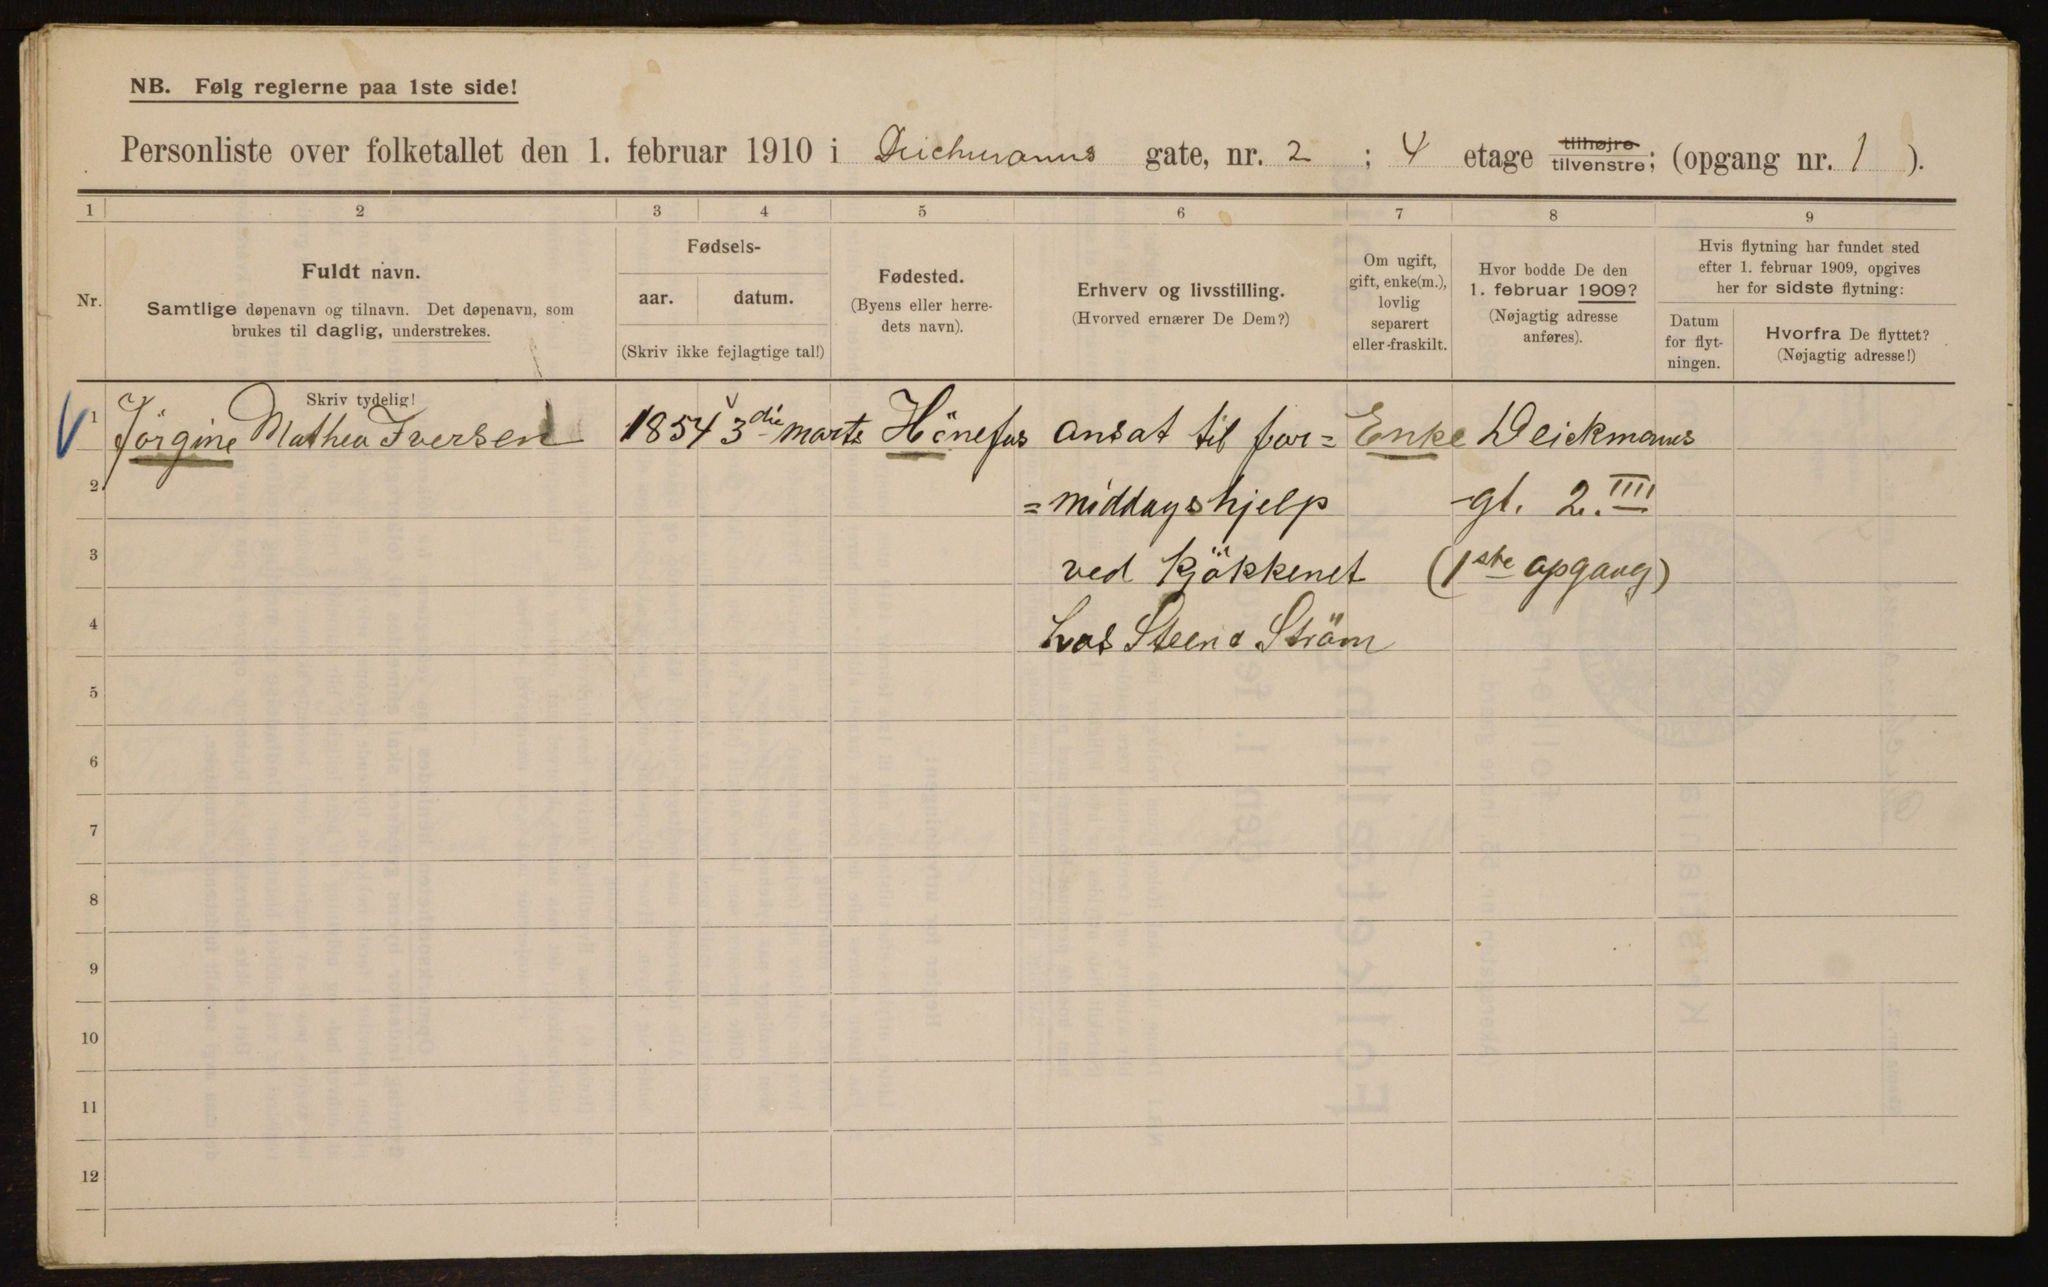 NB. Følg reglerne paa 1ste side!
Personliste over folketallet den 1. februar 1910 i Deichmanns gate, nr. 2 ; 4 etage tilhøjre tilvenstre; (opgang nr. 1 ).
1 2 3 4 5 6 7 8 9
Nr.
Fuldt navn.
Samtlige døpenavn og tilnavn. Det døpenavn, som
brukes til daglig, understrekes.
Skriv tydelig!
Fødsels-
aar. datum.
(Skriv ikke fejlagtige tal!)
Fødested.
(Byens eller herre-
dets navn).
Erhverv og livsstilling.
(Hvorved ernærer De Dem?)
Om ugift,
gift, enke(m.),
lovlig
separert
eller fraskilt.
Hvor bodde De den
1. februar 1909?
(Nøjagtig adresse
anføres).
Hvis flytning har fundet sted
efter 1. februar 1909, opgives
her for sidste flytning:
Datum
for flyt-
ningen.
Hvorfra De flyttet?
(Nøjagtig adresse!)
1 Jörgine Mathea Iversen 1854 3die marts Hönefos ansat til for= Enke Deickmanns
2 =middagshjelp -gt. 2. IIII
3 ved kjökkenet (1ste opgang)
4 hos Steen & Ström
5
6
7
8
9
10
11
12